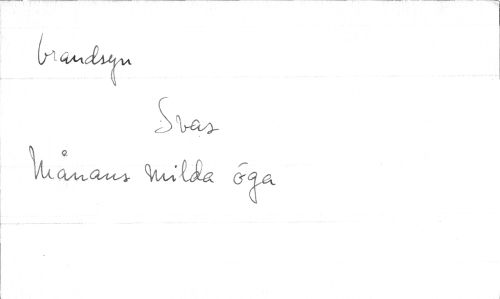 brandsyn
Svas
Månans milda öga